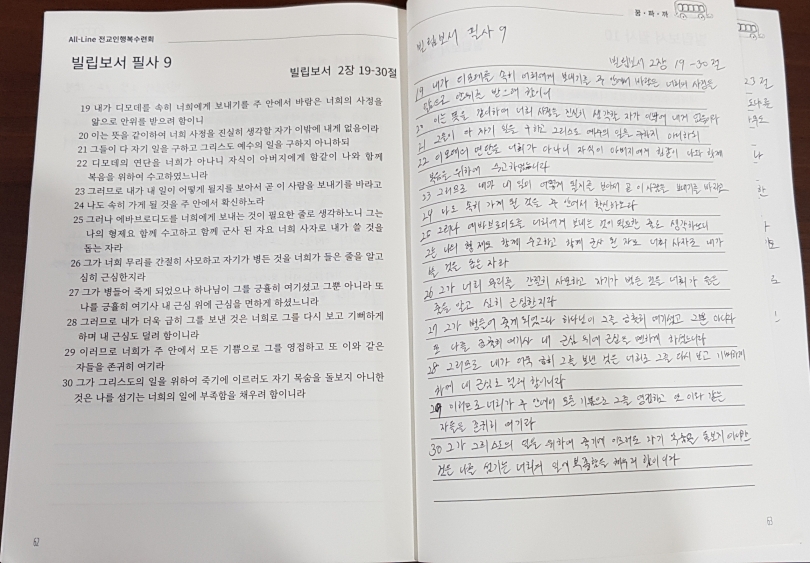 All-Line 전교인행복수련회
빌립보서 필사 9
빌립보서 2장 19-30절
19 내가 디모데를 속히 너희에게 보내기를 주 안에서 바람은 너희의 사정을
앎으로 안위를 받으려 함이니
20 이는 뜻을 같이하여 너희 사정을 진실히 생각할 자가 이밖에 내게 없음이라
21 그들이 다 자기 일을 구하고 그리스도 예수의 일을 구하지 아니하되
22 디모데의 연단을 너희가 아나니 자식이 아버지에게 함같이 나와 함께
복음을 위하여 수고하였느니라
23 그러므로 내가 내 일이 어떻게 될지를 보아서 곧 이 사람을 보내기를 바라고
24 나도 속히 가게 될 것을 주 안에서 확신하노라
25 그러나 에바브로디도를 너희에게 보내는 것이 필요한 줄로 생각하노니 그는
나의 형제요 함께 수고하고 함께 군사 된 자요 너희 사자로 내가 쓸 것을
돕는 자라
26 그가 너희 무리를 간절히 사모하고 자기가 병든 것을 너희가 들은 줄을 알고
심히 근심한지라
27 그가 병들어 죽게 되었으나 하나님이 그를 긍휼히 여기셨고 그뿐 아니라 또
나를 긍휼히 여기사 내 근심 위에 근심을 면하게 하셨느니라
28 그러므로 내가 더욱 급히 그를 보낸 것은 너희로 그를 다시 보고 기뻐하게
하며 내 근심도 덜려 함이니라
29 이러므로 너희가 주 안에서 모든 기쁨으로 그를 영접하고 또 이와 같은
자들을 존귀히 여기라
30 그가 그리스도의 일을 위하여 죽기에 이르러도 자기 목숨을 돌보지 아니한
것은 나를 섬기는 너희의 일에 부족함을 채우려 함이니라
62
꿈·파·까
빌립보서 필사 9
빌립보서 2장 19-30절
19 내가 디모데를 속히 너희에게 보내기를 주 안에서 바람은 너희의 사정을
앎으로 안위를 받으려 함이니
20 이는 뜻을 같이하여 너희 사정을 진실히 생각할 자가 이밖에 내게 없음이라
21 그들이 다 자기 일을 구하고 그리스도 예수의 일을 구하지 아니하되
22 디모데의 연단을 너희가 아나니 자식이 아버지에게 함같이 나와 함께
복음을 위하여 수고하였느니라
23 그러므로 내가 내 일이 어떻게 될지를 보아서 곧 이 사람을 보내기를 바라고
24 나도 속히 가게 될 것을 주 안에서 확신하노라
25 그러나 에바브로디도를 너희에게 보내는 것이 필요한 줄로 생각하노니
그는 나의 형제요 함께 수고하고 함께 군사 된 자요 너희 사자로 내가
쓸 것을 돕는 자라
26 그가 너희 무리를 간절히 사모하고 자기가 병든 것을 너희가 들은
줄을 알고 심히 근심한지라
27 그가 병들어 죽게 되었으나 하나님이 그를 긍휼히 여기셨고 그뿐 아니라
또 나를 긍휼히 여기사 내 근심 위에 근심을 면하게 하셨느니라
28 그러므로 내가 더욱 급히 그를 보낸 것은 너희로 그를 다시 보고 기뻐하게
하며 내 근심도 덜려 함이니라
29 이러므로 너희가 주 안에서 모든 기쁨으로 그를 영접하고 또 이와 같은
자들을 존귀히 여기라
30 그가 그리스도의 일을 위하여 죽기에 이르러도 자기 목숨을 돌보지 아니한
것은 나를 섬기는 너희의 일에 부족함을 채우려 함이니라
63
23절